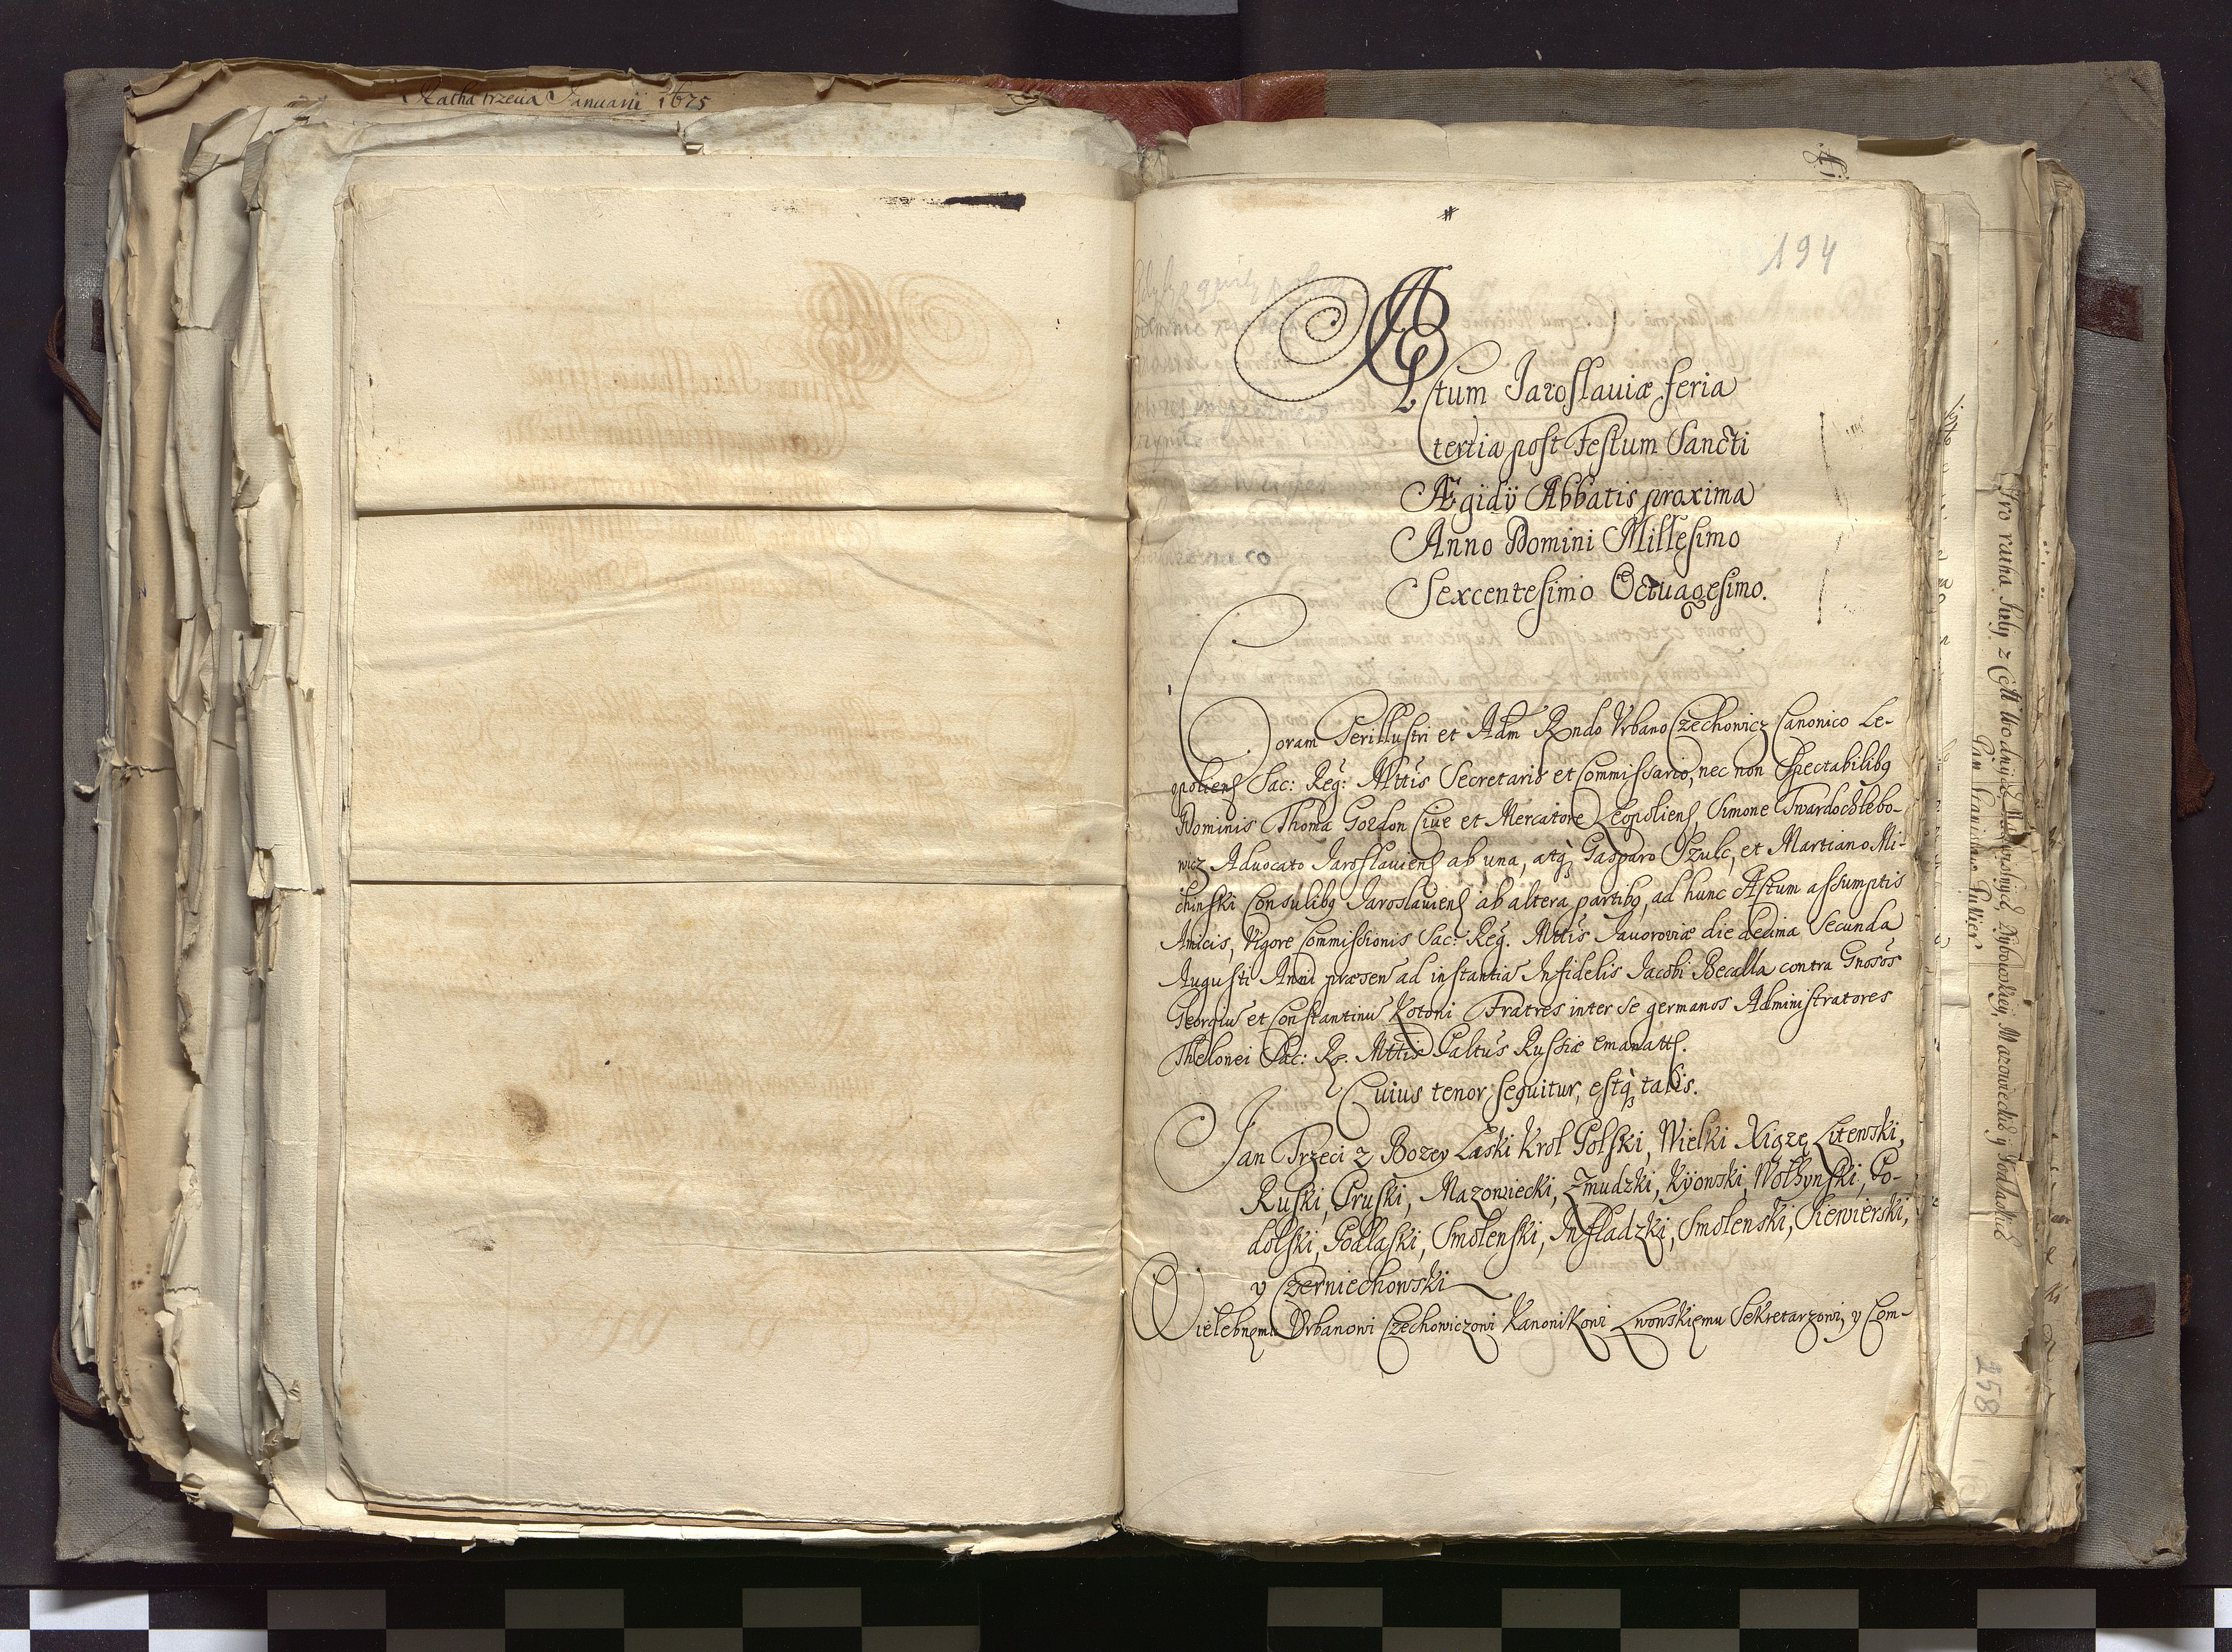 Ratha trzecia Januarii 1675
194
Actum Jaroslauiæ feria
tertia post Festum Sancti
Ægidÿ Abbatis proxima
Anno Domini Millesimo
Sexcentesimo Octuagesimo.
Coram Perillustri et Adm Rndo Vrbano Czechowicz Canonico Le-
opoliens Sac: Reg: Mttis Secretario et Commissario, nec non Spectabilibq
Dominis Thoma Gordon Ciue et Mercatore Leopoliens, Simone Twardochlebo-
wicz Aduocato Jaroslauiens ab una, atq Gasparo Szulc, et Martiano Mi-
chinski Consulibq Jaroslauiens ab altera partibq, ad hunc Actum assumptis
Amicis, Vigore Commissionis Sac: Reg. Mttis Jauoroviæ die decima Secunda
Augusti Anni præsen ad instantia Infidelis Jacobi Becalla contra Gnosos
Georgiu et Constantinu Kotoni Fratres inter se germanos Administratores
Thelonei Sac: R. Mttis Paltus Russiæ emanatt.
Cuius tenor sequitur, estq talis.
Jan Trzeci z Bozey Łaski Krol Polski, Wielki Xiąze Litewski,
Ruski, Pruski, Mazowiecki, Zmudzki, Kÿowski, Wołhynski, Po-
dolski, Podlaski, Smolenski, Infladzki, Smolenski, Siewierski,
y Czerniechowski
Wielebnemu Vrbanowi Czechowiczowi Kanonikowi Lwowskiemu Sekretarzowi, y Com-
258